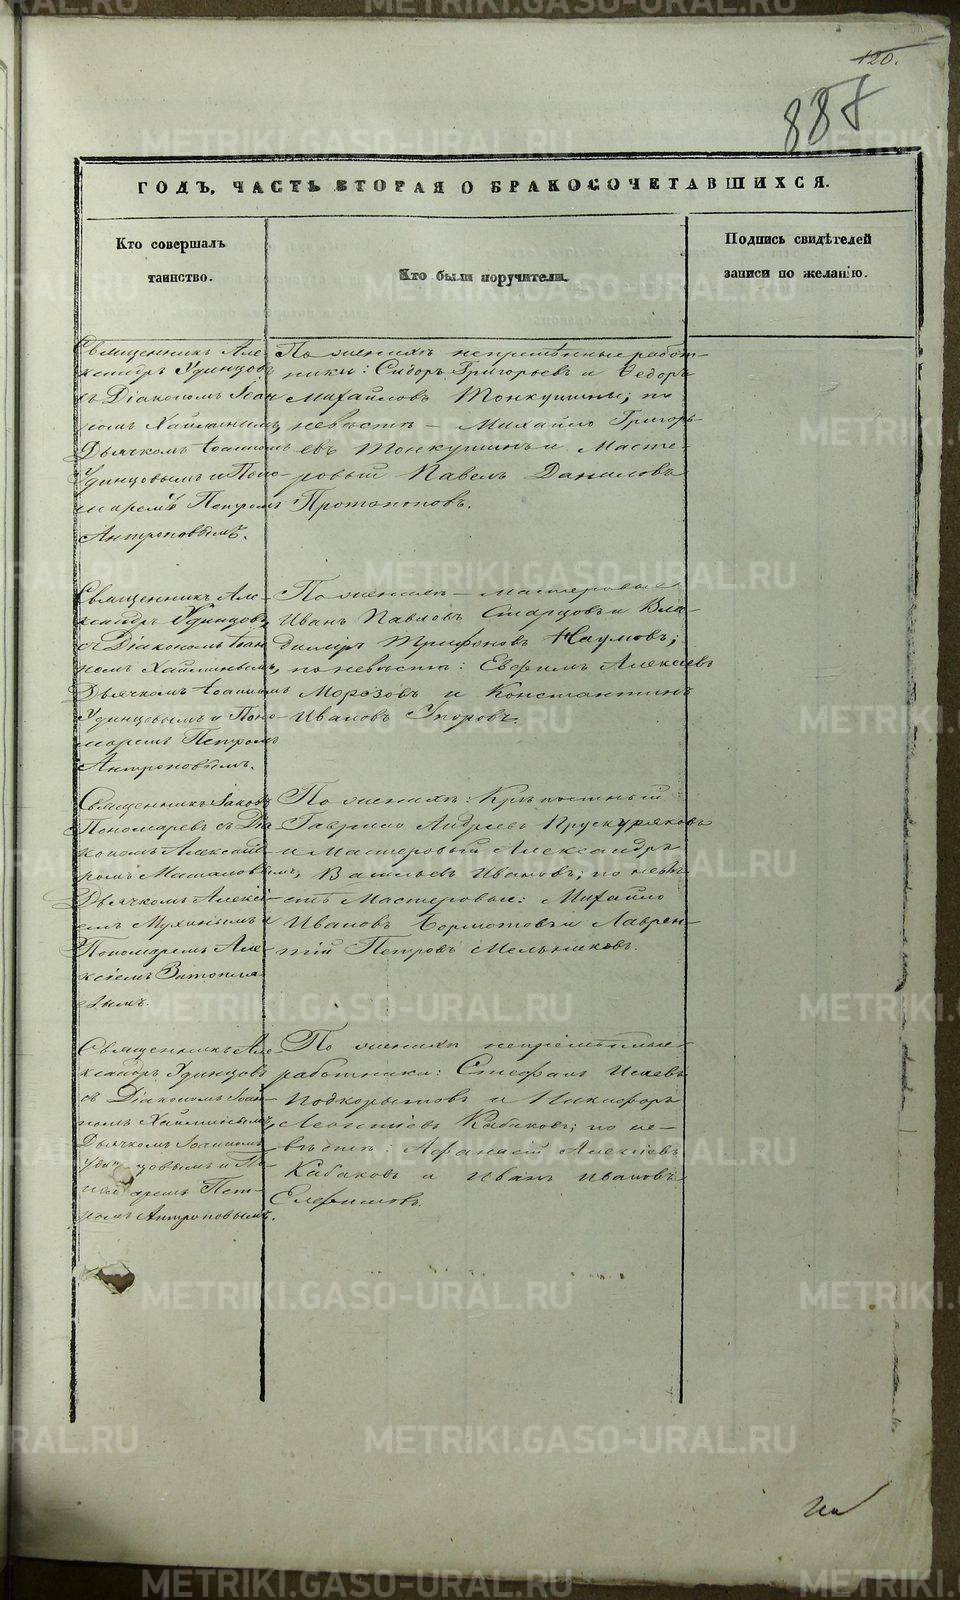 120.
887
ГОДЪ, ЧАСТЬ ВТОРАЯ О БРАКОСОЧЕТАВШИХСЯ.
Кто совершалъ
таинство.
Кто были поручители.
Подпись свидѣтелей
записи по желанію.
Священникъ Але-
ксандръ Удинцовъ
съ Діакономъ Іоан
номъ Хайминымъ,
Дьячкомъ Іоанномъ
Удинцовымъ и Поно-
маремъ Петромъ
Антроповымъ.
По женихѣ непремѣнные работ-
ники: Сидоръ Григорьевъ и Ѳедоръ
Михайловъ Тонкушины; по
невѣстѣ – Михайло Григорь-
евъ Тонкушинъ и Масте-
ровый Павелъ Даниловъ
Протопоповъ.
Священникъ Але-
ксандръ Удинцовъ
съ Діакономъ Іоан
номъ Хайминымъ,
Дьячкомъ Іоанномъ
Удинцовымъ и Поно-
маремъ Петромъ
Антроповымъ.
По женихѣ – мастеровые
Иванъ Павловъ Старцовъ и Вла-
димиръ Трифоновъ Наумовъ;
по невѣстѣ: Евфимъ Алексѣевъ
Морозовъ и Константинъ
Ивановъ Упоровъ.
Священникъ Іаковъ
Пономаревъ съ Діа
кономъ Александ
ромъ
Дьячкомъ Алексѣ-
емъ Мухинымъ и
Пономаремъ Але-
ксѣемъ
По женихѣ: Крѣпостный
Гаврило Андреевъ Прускуряковъ
и Мастеровый Александръ
Васильевъ Ивановъ; по невѣ-
стѣ Мастеровые: Михайло
Ивановъ Бормотовъ и Лаврен-
тій Петровъ Мельниковъ.
Священникъ Але
ксандръ Удинцовъ
съ Діакономъ Іоан-
номъ Хайминымъ,
Дьячкомъ Іоанномъ
Удинцовымъ и По-
номаремъ Пет-
ромъ Антроповымъ.
По женихѣ непремѣнные
работники: Стефанъ Исаевъ
Подкорытовъ и Никифоръ
Леонтіевъ Кабаковъ; по не-
вѣстѣ: Афанасій Алексѣевъ
Кабаковъ и Иванъ Ивановъ
Елефимовъ.
METRIKI.GASO-URAL.RU